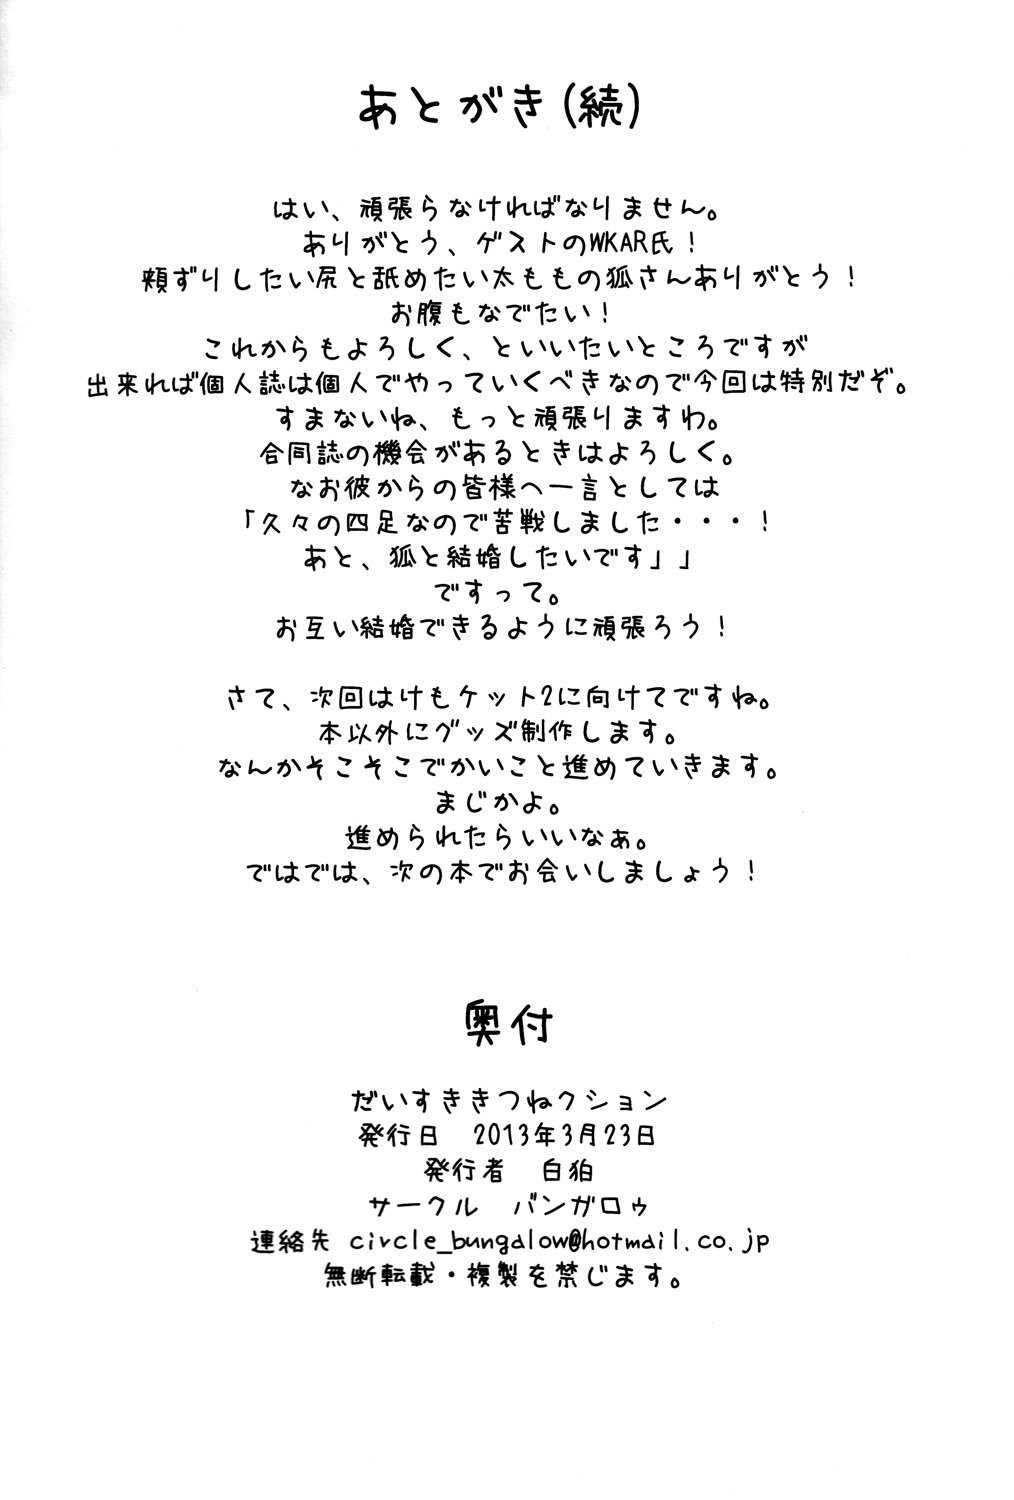 あとがき(続)
はい、頑張らなければなりません。
ありがとう、ゲストのWKAR氏！
頬ずりしたい尻と舐めたい太ももの狐さんありがとう！
お腹もなでたい！
これからもよろしく、といいたいところですが
出来れば個人誌は個人でやっていくべきなので今回は特別だぞ。
すまないね、もっと頑張りますわ。
合同誌の機会があるときはよろしく。
なお彼からの皆様へ一言としては
「久々の四足なので苦戦しました・・・！
あと、狐と結婚したいです」」
ですって。
お互い結婚できるように頑張ろう！
さて、次回はけもケット2に向けてですね。
本以外にグッズ制作します。
なんかそこそこでかいこと進めていきます。
まじかよ。
進められたらいいなぁ。
ではでは、次の本でお会いしましょう！
奥付
だいすききつねクション
発行日　2013年3月23日
発行者　白狛
サークル　バンガロゥ
連絡先 circle_bungalow@hotmail.co.jp
無断転載・複製を禁じます。